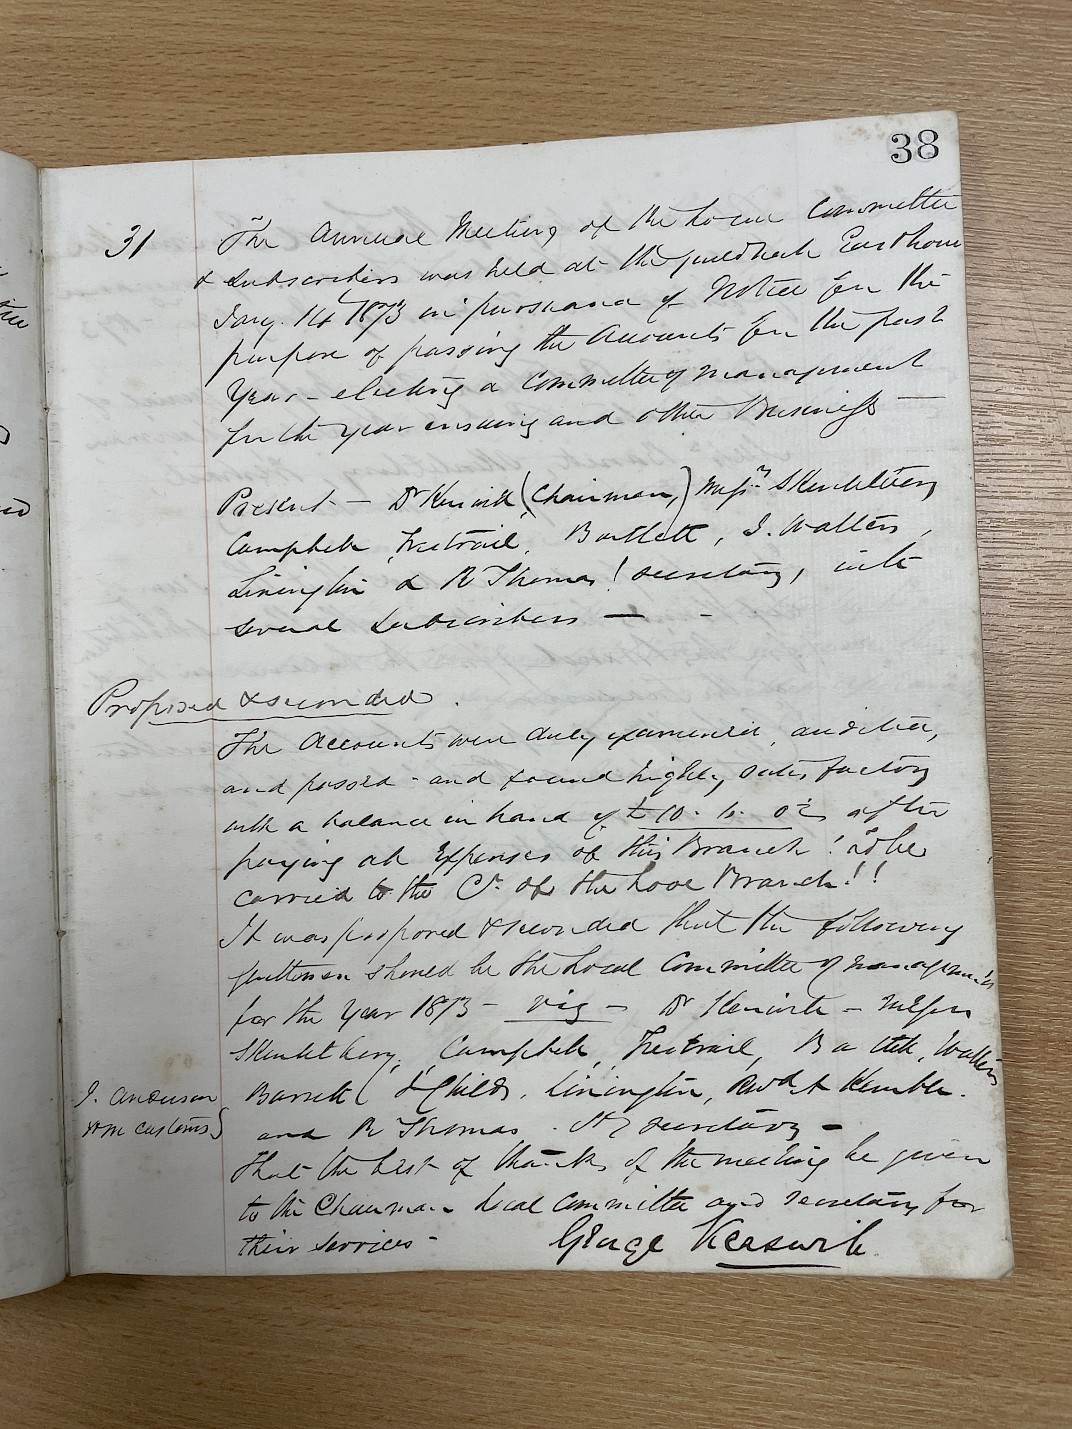 38
31 The Annual Meeting of the Local Committee
& Subscribers was held at the Guildhall East Looe
Jany. 14 1873 in pursuance of Notice for the
purpose of passing the Accounts for the past
Year - electing a Committee of Management
for the year ensuing and other Business —
Present — Dr Kerswill (Chairman,) Messrs Skentelbery
Campbell, Treetrail, Bartlett, J. Walters,
Linington & R Thomas! Secretary, with
several Subscribers — -
Proposed & seconded.
The Accounts were duly examined, audited,
and passed - and found highly satisfactory
with a balance in hand of £10. 10. 02 after
paying all Expenses of this Branch! to be
carried to the Cr. of the Looe Branch!!
It was proposed & seconded that the following
gentlemen should be the Local Committee of Management
for the Year 1873 - viz - Dr Kerswill - Messrs
Skentelbery, Campbell, Treetrail, Bartlett, Walters
J. Anderson Barrett & Childs, Linington, Revd A Kemble.
HM Customs and R Thomas. Secretary -
That the best of thanks of the meeting be given
to the Chairman Local Committee and Secretary for
their Services -
George Kerswill